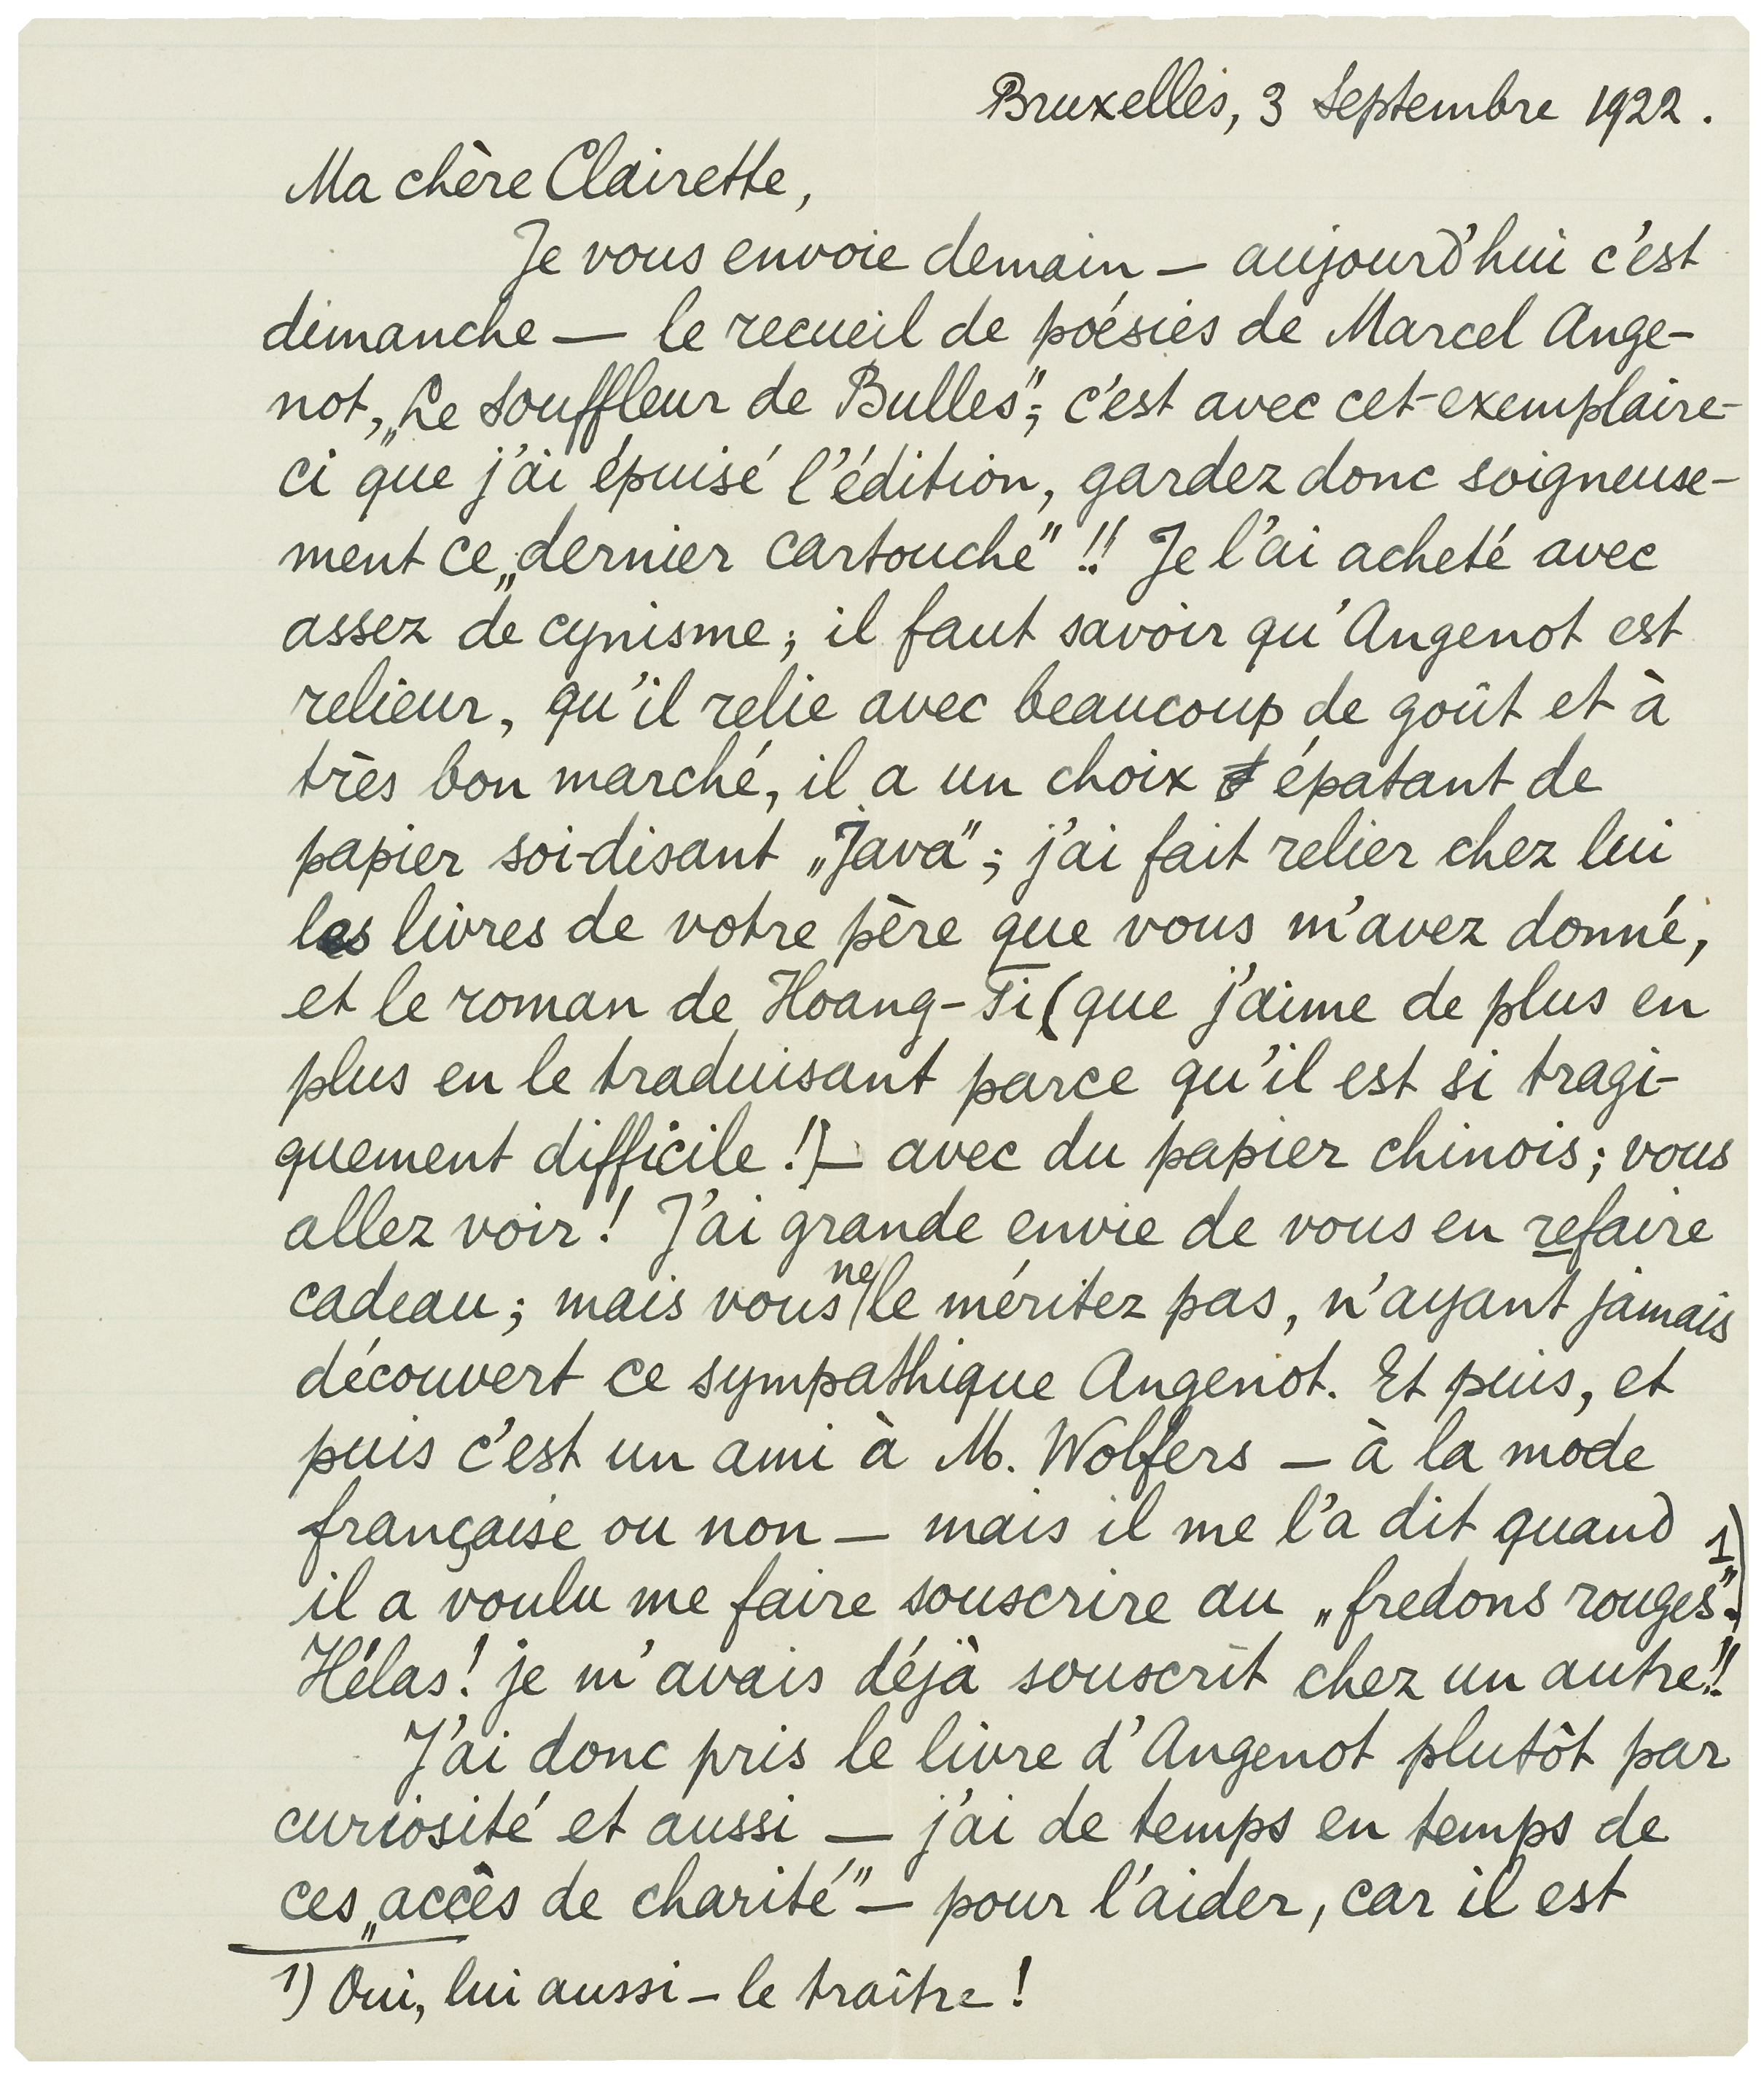 Bruxelles, 3 Septembre 1922.
Ma chère Clairette,
Je vous envoie demain — aujourd'hui c'est
dimanche — le recueil de poésies de Marcel Ange-
not, „Le Souffleur de Bulles"; c'est avec cet exemplaire-
ci que j'ai épuisé l'édition, gardez donc soigneuse-
ment ce „dernier cartouche" !! Je l'ai acheté avec
assez de cynisme; il faut savoir qu'Angenot est
relieur, qu'il relie avec beaucoup de goût et à
très bon marché, il a un choix épatant de
papier soi-disant „Java"; j'ai fait relier chez lui
les livres de votre père que vous m'avez donné,
et le roman de Hoang-Ti (que j'aime de plus en
plus en le traduisant parce qu'il est si tragi-
quement difficile !) — avec du papier chinois; vous
allez voir! J'ai grande envie de vous en refaire
cadeau; mais vous ne le méritez pas, n'ayant jamais
découvert ce sympathique Angenot. Et puis, et
puis c'est un ami à M. Wolfers — à la mode
française ou non — mais il me l'a dit quand
il a voulu me faire souscrire au „fredons rouges". 1)
Hélas! je m'avais déjà souscrit chez un autre!!
J'ai donc pris le livre d'Angenot plutôt par
curiosité et aussi — j'ai de temps en temps de
ces „accès de charité" — pour l'aider, car il est
1) Oui, lui aussi — le traître!